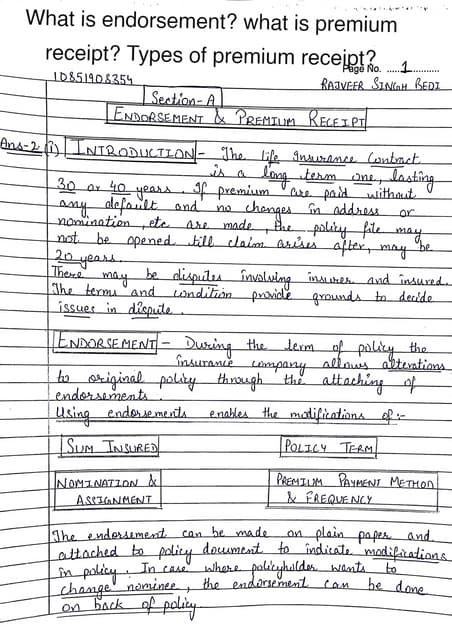 What is endorsement? what is premium
receipt? Types of premium receipt?
Page No. 1
ID851908354
RAJVEER SINGH BEDI
Section-A
ENDORSEMENT & PREMIUM RECEIPT
Ans-2 (i) INTRODUCTION - The life insurance contract
is a long term one, lasting
30 or 40 years. If premium are paid without
any default and no changes in address or
nomination, etc are made, the policy file may
not be opened till claim arises after, may be
20 years.
There may be disputes involving insurer and insured.
The terms and condition provide grounds to decide
issues in dispute.
ENDORSEMENT - During the term of policy the
insurance company allows alterations
to original policy through the attaching of
endorsements.
Using endorsements enables the modifications of :-
SUM INSURED
POLICY TERM
NOMINATION &
ASSIGNMENT
PREMIUM PAYMENT METHOD
& FREQUENCY
The endorsement can be made on plain paper and
attached to policy document to indicate modifications
in policy. In case where policyholder wants to
change nominee, the endorsement can be done
on back of policy.